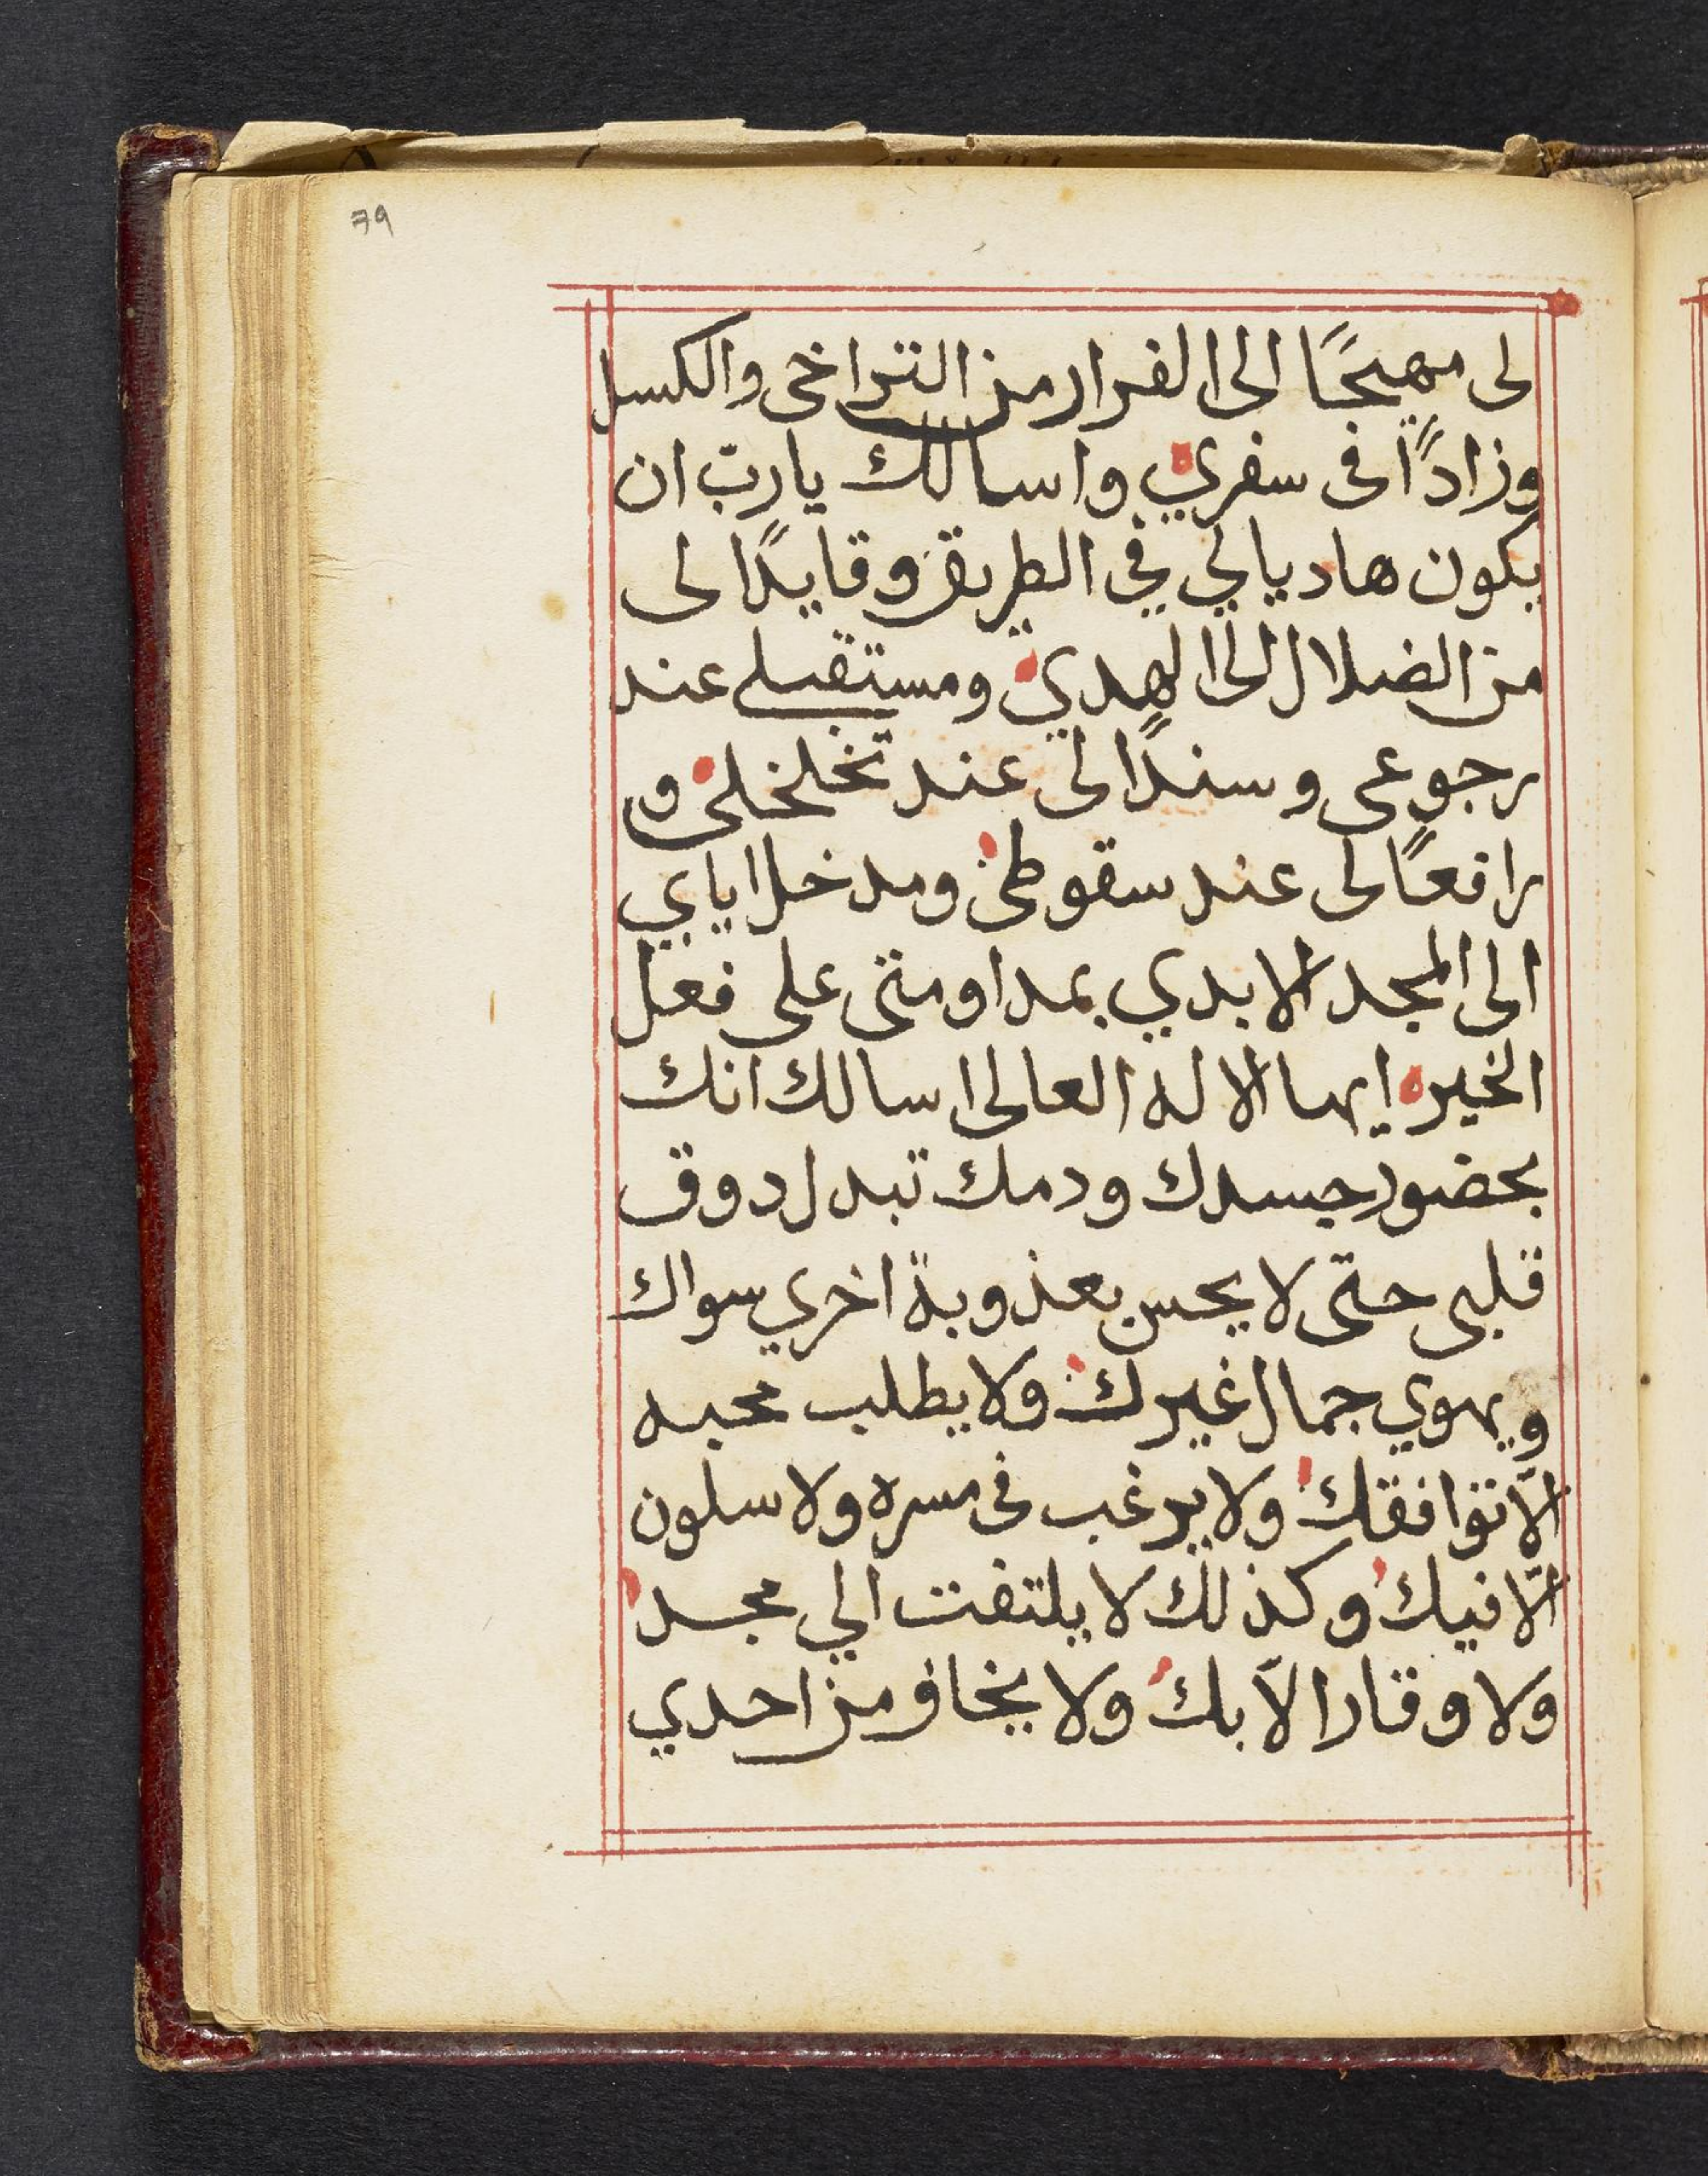 79
لى مهيجًا الى الفرار من التراخى والكسل
وزادًا فى سفري واسالك يا ربّ ان
يكون هاديا لي في الطريق وقايدًا لى
من الضلال الى الهدي ومستقبلى عند
رجوعى وسندًا لى عند تخلخلى و
رافعًا لى عند سقوطى ومدخل اياي
الى المجد الابدي بمداومتى على فعل
الخير ايها الاله العالى اسالك انك
بحضور جسدك ودمك تبدل دوق
قلبى حتى لا يحس بعذوبة اخري سواك
ويهوي جمال غيرك ولا يطلب محبه
الّا توافقك ولا يرغب فى مسره ولا سلون
الّا فيك وكذلك لا يلتفت الي مجد
ولا وقارا الّا بك ولا يخاف من احدي